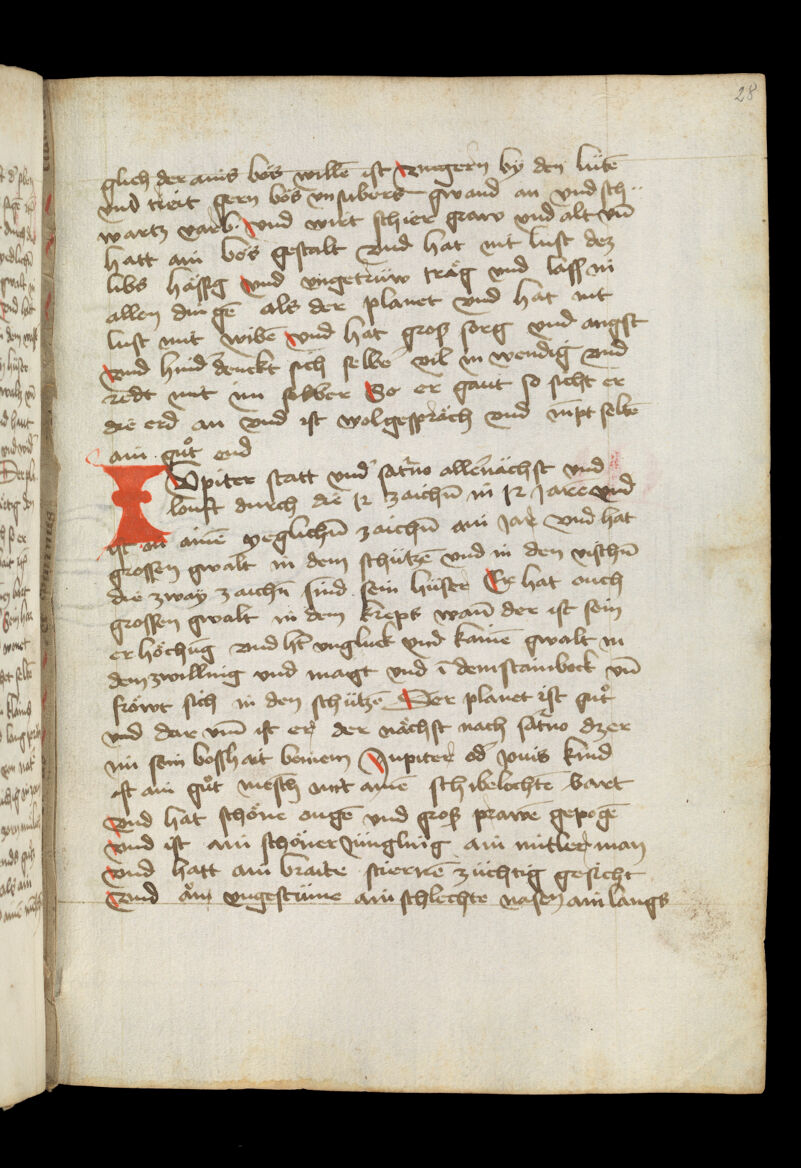 28
glich der ains bös wille ist vngern by den lüte
vnd treit gern bös vnsubers gwand an vnd sch
wartz varb vnd wirt schier graw vnd alt vn̄
hatt ain bös gestalt vnd hat nit lust dez
libs hässig vnd vngetrüw träg vnd lass in
allen dingē als der planet vnd hat nit
lust mit wibē vnd hat groß sorg vnd angst
vnd hind denckt sich selbe vil in wendig vnd
redt mit im selber So er gaut so sicht er
die erd an vnd ist wolgespräch vnd nīpt selte
ain gůt end
Upiter statt vnd satno allernächst vnd
louft durch die 12 zaichn̄ in 12 Jaren vnd
ist in aine yeglichn̄ zaichn̄ ain Jar vnd hat
grossen gwalt in dem schützē vnd in den vischn̄
die zway zaichn̄ sind sein hüser Er hat ouch
grossen gwalt in dem kreps wan̄ der ist sein
erhöchūg vnd ht vngluck vnd kainē gwalt in
dem zwilling vnd magt vnd ī dem stainbock vn̄
fröwt sich in den schützē Der planet ist gůt
vnd dar vm̄ ist er der nächst nach satno dz er
im sein bosshait beniem Jupiter od Jouis kind
ist ain gůt mēsch mit aine schibelochte bart
vnd hat schöne ouge vnd groß prawē gepoge
vnd ist ain schöner Jüngling ain mitler man
vnd hatt ain braite stiernē züchtig gesicht
vnd ån vngestüme ain schlechte nasen ain langs